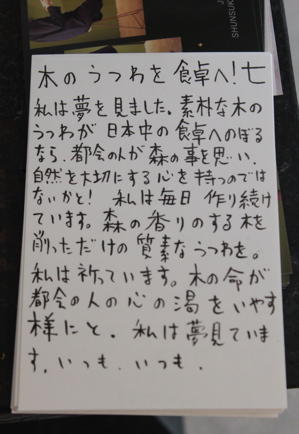 SHUNSUK
木のうつわを食卓へ!七
私は夢を見ました。素朴な木の
うつわが日本中の食卓へのぼる
なら、都会の人が森の事を思い、
自然を大切にする心を持つのでは
ないかと! 私は毎日作り続け
ています。森の香りのする材を
削っただけの質素なうつわを。
私は祈っています。木の命が
都会の人の心の渇をいやす
様にと。私は夢見ていま
す、いつも、いつも。